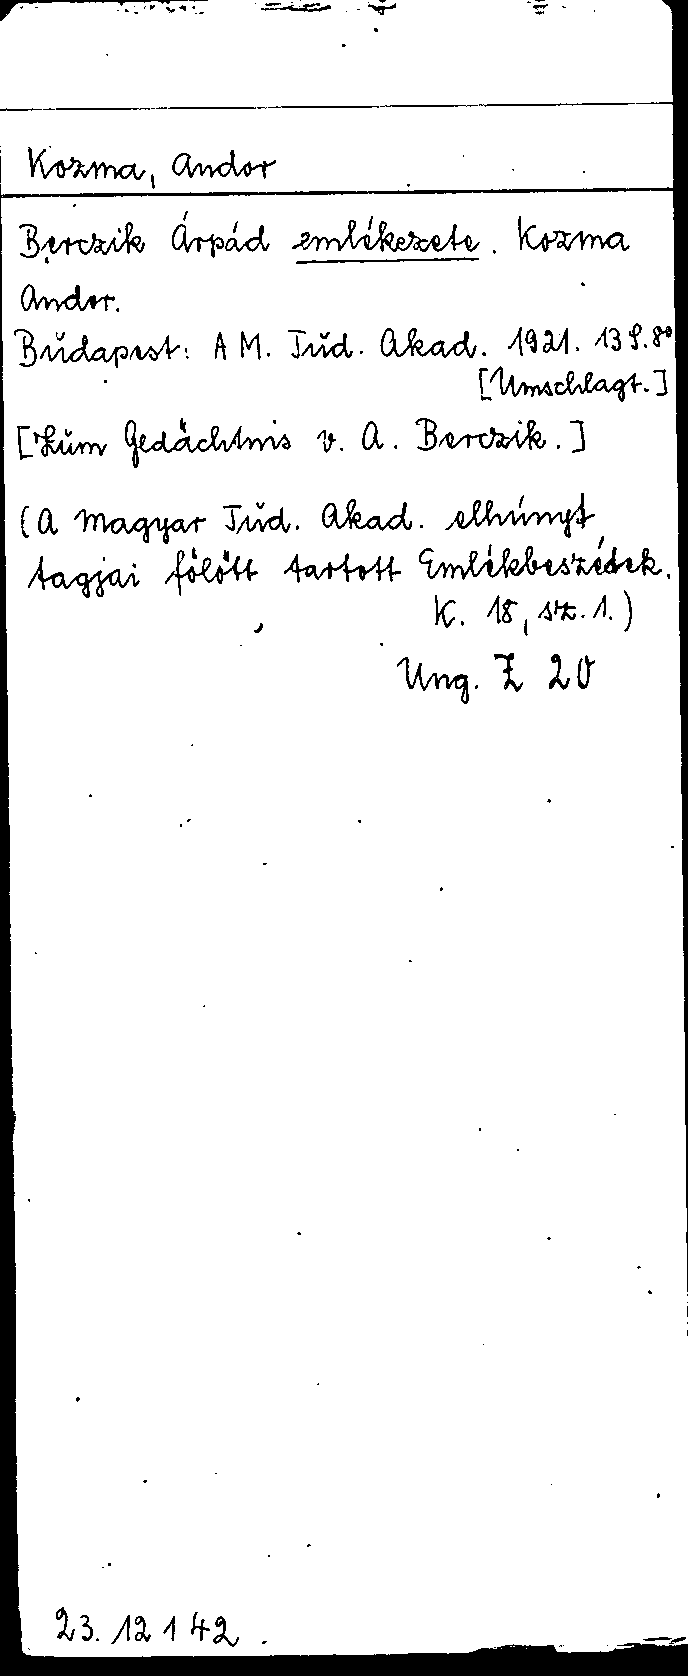 Kozma, Andor
Berczik Árpád emlékezete. Kozma
Andor.
Budapest: A M. Tud. Akad. 1921. 13 S. 8°
[Umschlagt.]
[Zum Gedächtnis v. A. Berczik.]
(A Magyar Tud. Akad. elhúnyt
tagjai fölött tartott Emlékbeszédek.
K. 18, sz. 1.)
Ung. Z 20
23. 12 1 42.